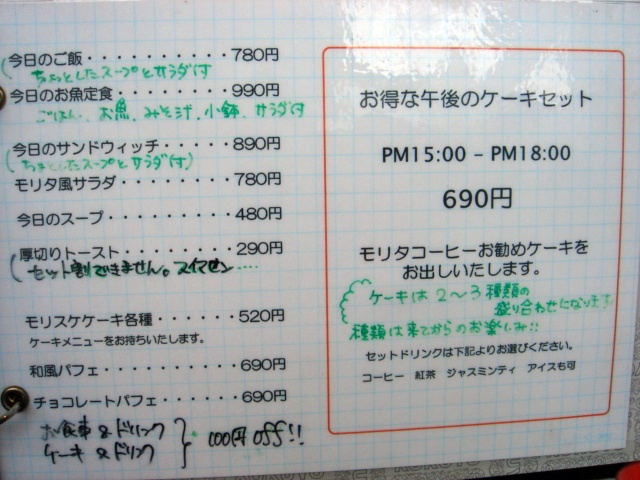 今日のご飯・・・・・・・・・・780円
(ちょっとしたスープとサラダ付
今日のお魚定食・・・・・・・・990円
ごはん、お魚、みそ汁、小鉢、サラダ付
今日のサンドウィッチ・・・・・890円
(ちょっとしたスープとサラダ付)
モリタ風サラダ・・・・・・・・780円
今日のスープ・・・・・・・・・480円
厚切りトースト・・・・・・・・290円
(セット割できません。スイマセン……
モリスケケーキ各種・・・・・・520円
ケーキメニューをお持ちいたします。
和風パフェ・・・・・・・・・・690円
チョコレートパフェ・・・・・・690円
お食事&ドリンク
ケーキ&ドリンク
100円off!!
お得な午後のケーキセット
PM15:00 – PM18:00
690円
モリタコーヒーお勧めケーキを
お出しいたします。
ケーキは2〜3種類の
盛り合わせになります。
種類は来てからのお楽しみ!!
セットドリンクは下記よりお選びください。
コーヒー 紅茶 ジャスミンティ アイスも可